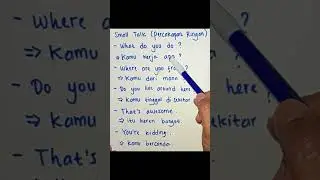 Small Talk (Percakapan Ringan)
- What do you do ?
⇒ Kamu kerja apa ?
- Where are you from ?
⇒ Kamu dari mana ?
- Do you live around here
⇒ Kamu tinggal di sekitar
- That's awesome..
⇒ itu keren banget.
- You're kidding..
⇒ kamu bercanda.
- Where a
⇒ Kamu
- Do you
⇒ Kam
ekitar
- That's